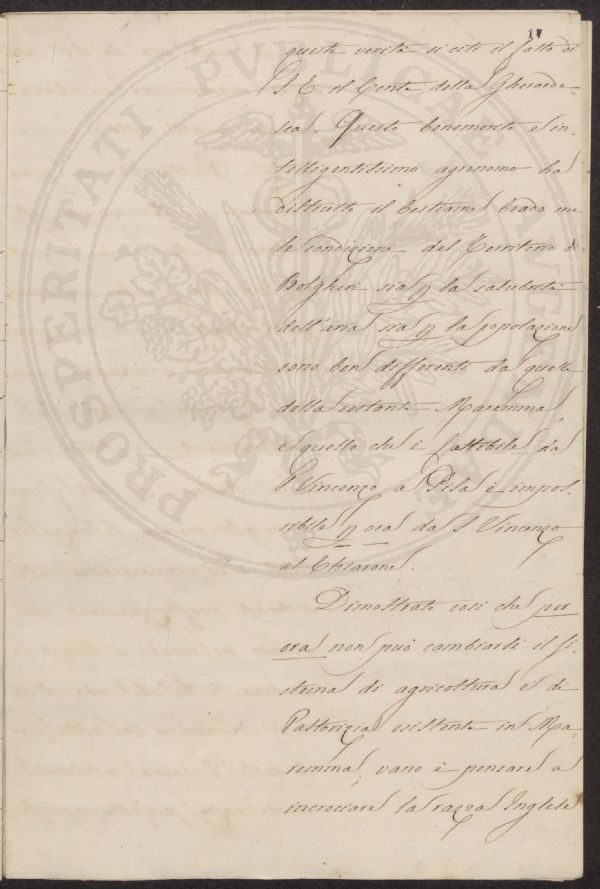 17
queste verità si citi il fatto di
S. E. il Conte della Gherarde-
sca. Questo benemerito e in-
telligentissimo agronomo ha
distrutto il bestiame brado ma
le condizioni del Territorio di
Bolgheri sia p la salubrità
dell'aria sia p la popolazione
sono ben differenti da quelle
della restante Maremma,
e quello che è fattibile da
S. Vincenzo a Pisa è impos-
sibile p ora da S. Vincenzo
al Chiarone.
Dimostrato così che per
ora non può cambiarsi il si-
stema di agricoltura e di
Pastorizia esistente in Ma-
remma, vano è pensare a
incrociare la razza Inglese
PROSPERITATI PUBLICAE AUGENDAE